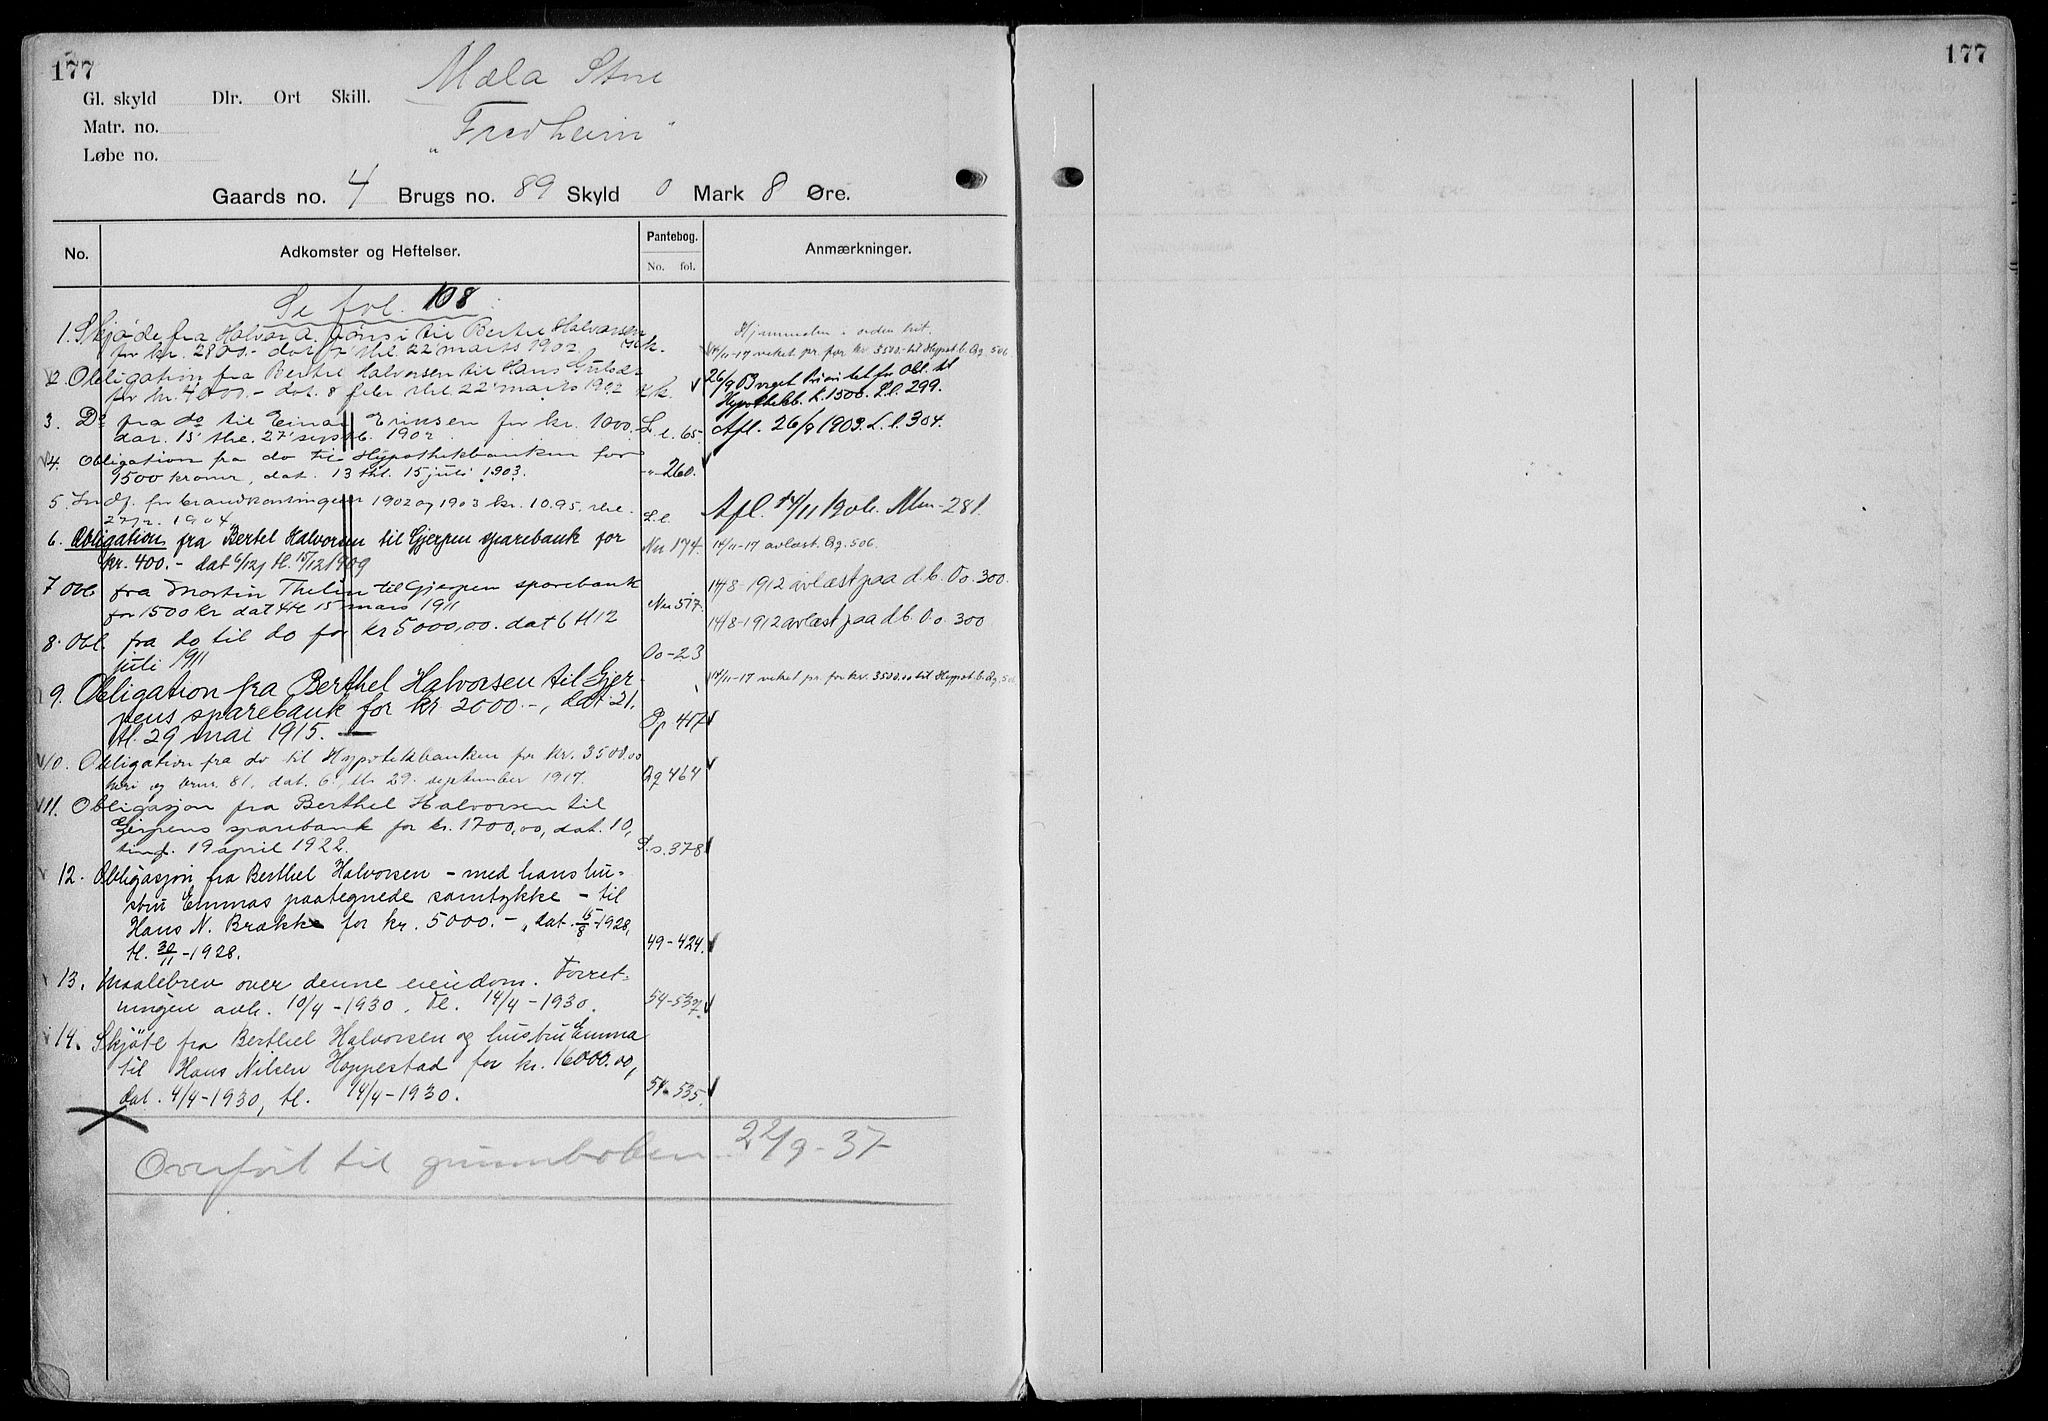 177
177
Mæla Store
Gl. skyld Dlr. Ort Skill.
Matr. no.
„Fredheim"
Løbe no.
Gaards no. 4 Brugs no. 89 Skyld 0 Mark 8 Øre.
No. Adkomster og Heftelser. Pantebog. No. fol. Anmærkninger.
Se fol. 108
1. Skjøde fra Halvor A. til Bertel Halvorsen
for kr. 2800.- dat. thl. 22 marts 1902 k.
Hjemmelen i orden
14/11-17 veket pr. for kr. 3500.- til Hypot.b. Qq. 506
2. Obligation fra Bertel Halvorsen til Hans
for kr. 4000.- dat. 8 febr. thl. 22 marts 1902 k.
26/9 03 veget Prioritet for Obl. til
Hypothekb. k. 1500. L.l. 299.
3. Do fra do til Einar for kr. 1000.
dat. 15 thl. 27 septb. 1902 L.l. 65.
Afl. 26/9 1903. L.l. 304.
4. Obligation fra do til Hypothekbanken for
1500 kroner, dat. 13 thl. 15 juli 1903. -"- 260.
5. Indf. for brandkontingent 1902 og 1903 kr. 10.95. thl.
1904 L.l.
Afl. 14/11 1906. Mm-281.
6. Obligation fra Bertel Halvorsen til Gjerpen sparebank for
kr. 400.- dat 6/12, tl. 15/12 1909
Nn 174.
14/11-17 avlæst. Qq. 506.
7 Obl. fra Morten Thelin til Gjerpen sparebank
for 1500 kr dat 4 tl 15 mars 1911
Nn 517.
14/8-1912 avlæst paa d.b. Oo. 300.
8. Obl. fra do til do for kr 5000,00. dat 6 tl 12
juli 1911
Oo-23
14/8-1912 avlæst paa d b. Oo. 300
9. Obligation fra Berthel Halvorsen til Gjer-
pens sparebank for kr 2000.-, dat. 21,
tl. 29 mai 1915.
Pp 417
14/11-17 veket pr. for kr. 3500.00 til Hypot.b. Qq. 506
10. Obligation fra do til Hypotekbanken for kr. 3500.00
heri og brnr. 81, dat. 6, th 29. september 1917.
Qq 464
11. Obligasjon fra Berthel Halvorsen til
Gjerpens sparebank for kr. 1700,00, dat. 10,
tingl. 19 april 1922.
S.s. 378
12. Obligasjon fra Berthel Halvorsen - med hans hu-
stru Emmas paategnede samtykke - til
Hans N. Brække for kr. 5000.-, dat. 15/8-1928,
tl. 30/11-1928.
49-424.
13. Maalebrev over denne eiendom. Forret-
ningen avh. 10/4-1930. Tl. 14/4-1930.
54-532.
14. Skjøte fra Berthel Halvorsen og hustru Emma
til Hans Nilsen Hoppestad for kr. 16000.00,
dat. 4/4-1930, tl. 14/4-1930.
54-535.
Overført til grunnboken 22/9-37